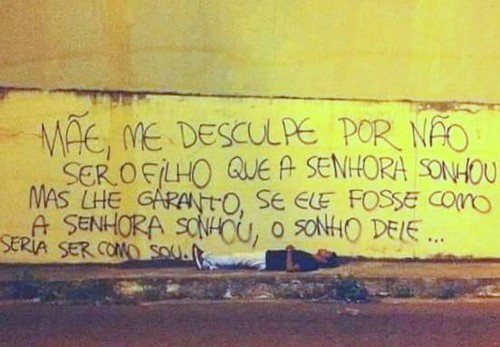 MÃE, ME DESCULPE POR NÃO
SER O FILHO QUE A SENHORA SONHOU
MAS LHE GARANTO, SE ELE FOSSE COMO
A SENHORA SONHOU, O SONHO DELE...
SERIA SER COMO SOU.